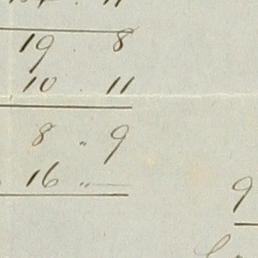 19 . 8
10 . 11
8 " 9
16 " —
9